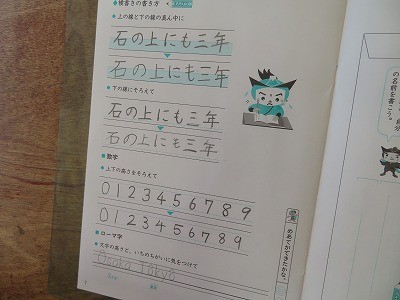 ◆横書きの書き方
●上の線と下の線の真ん中に
石の上にも三年
石の上にも三年
●下の線にそろえて
石の上にも三年
石の上にも三年
■数字
●上下の高さをそろえて
0123456789
0123456789
■ローマ字
●文字の高さと、いちのちがいに気をつけて
Osaka Tōkyō
めあてができたかな。
の名前を書こう。